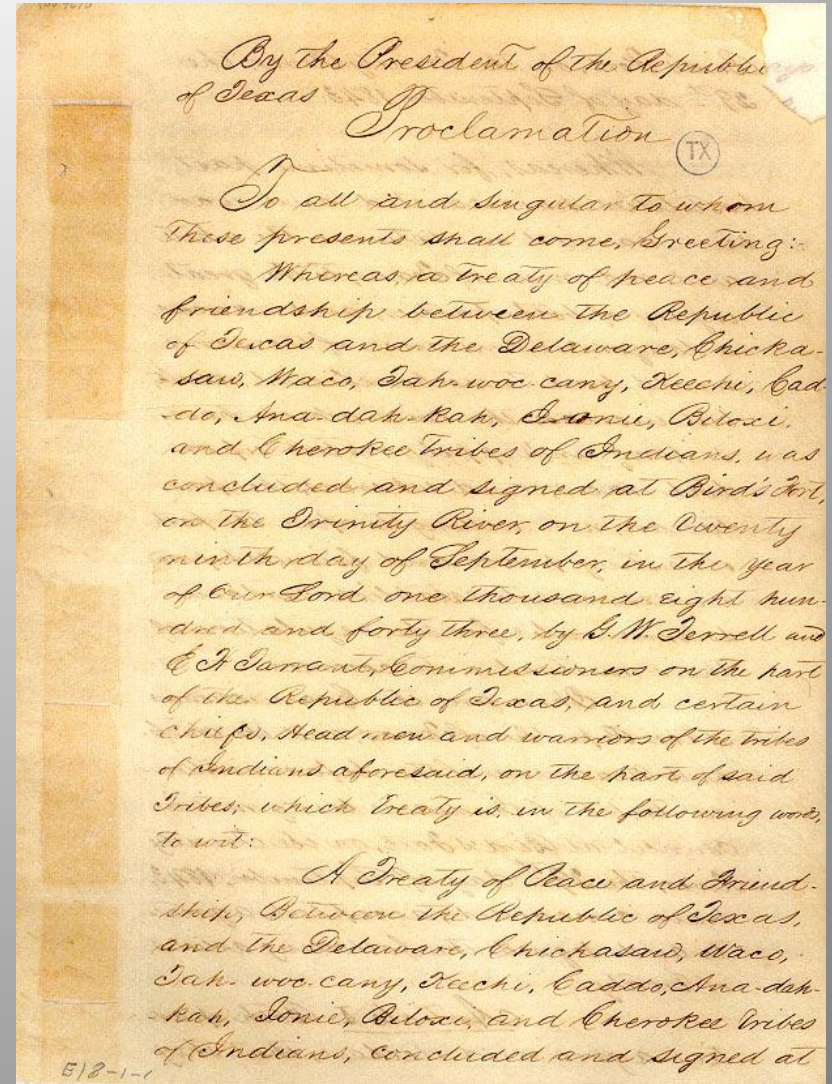 By the President of the Republic
of Texas
Proclamation
TX
To all and singular to whom
these presents shall come, Greeting:-
Whereas, a treaty of peace and
friendship between the Republic
of Texas and the Delaware, Chicka-
saw, Waco, Tah-woc-cany, Keechi, Cad-
-do, Ana-dah-kah, Ionie, Biloxi,
and Cherokee tribes of Indians, was
concluded and signed at Bird's Fort,
on the Trinity River, on the twenty
ninth day of September, in the year
of Our Lord one thousand eight hun-
dred and forty three, by G.W. Terrell and
E H Tarrant, Commissioners on the part
of the Republic of Texas, and certain
chiefs, Head men and warriors of the tribes
of Indians aforesaid, on the part of said
Tribes, which treaty is, in the following words,
to wit:
A Treaty of Peace and Friend-
ship, Between the Republic of Texas,
and the Delaware, Chickasaw, Waco,
Tah-woc-cany, Keechi, Caddo, Ana-dah-
kah, Ionie, Biloxi, and Cherokee tribes
of Indians, concluded and signed at
E18-1-1